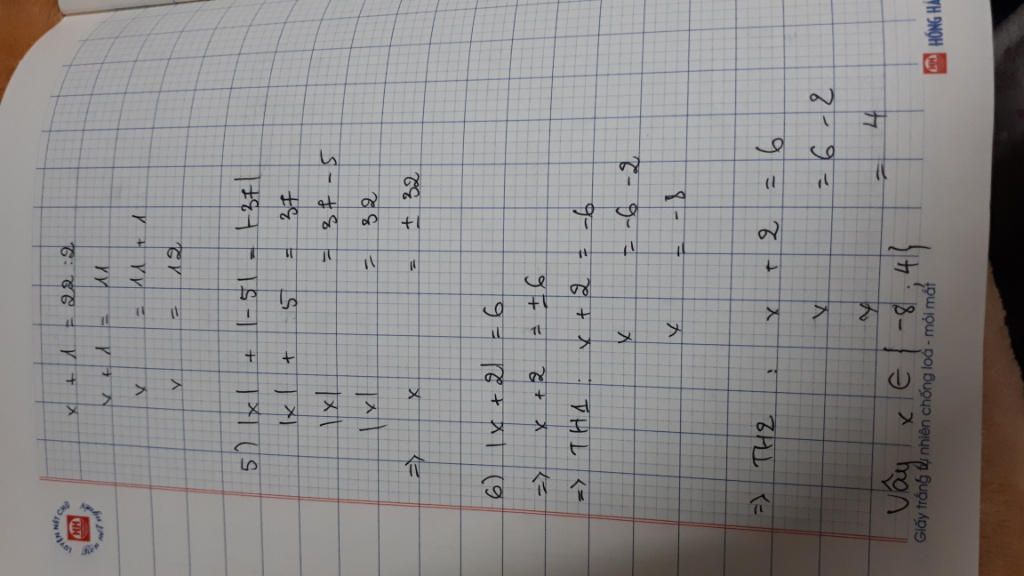 x + 1 = 22 : 2
x + 1 = 11
x = 11 + 1
x = 12
5) |x| + |-5| = |-37|
|x| + 5 = 37
|x| = 37 - 5
|x| = 32
=> x = ± 32
6) |x + 2| = 6
=> x + 2 = ± 6
=> TH1: x + 2 = -6
x = -6 - 2
x = -8
=> TH2 : x + 2 = 6
x = 6 - 2
x = 4
Vậy x ∈ { -8 ; 4}
Giấy trắng tự nhiên chống loá - mỏi mắt
LUYỆN NÉT CHỮ
HH
HH HỒNG HÀ